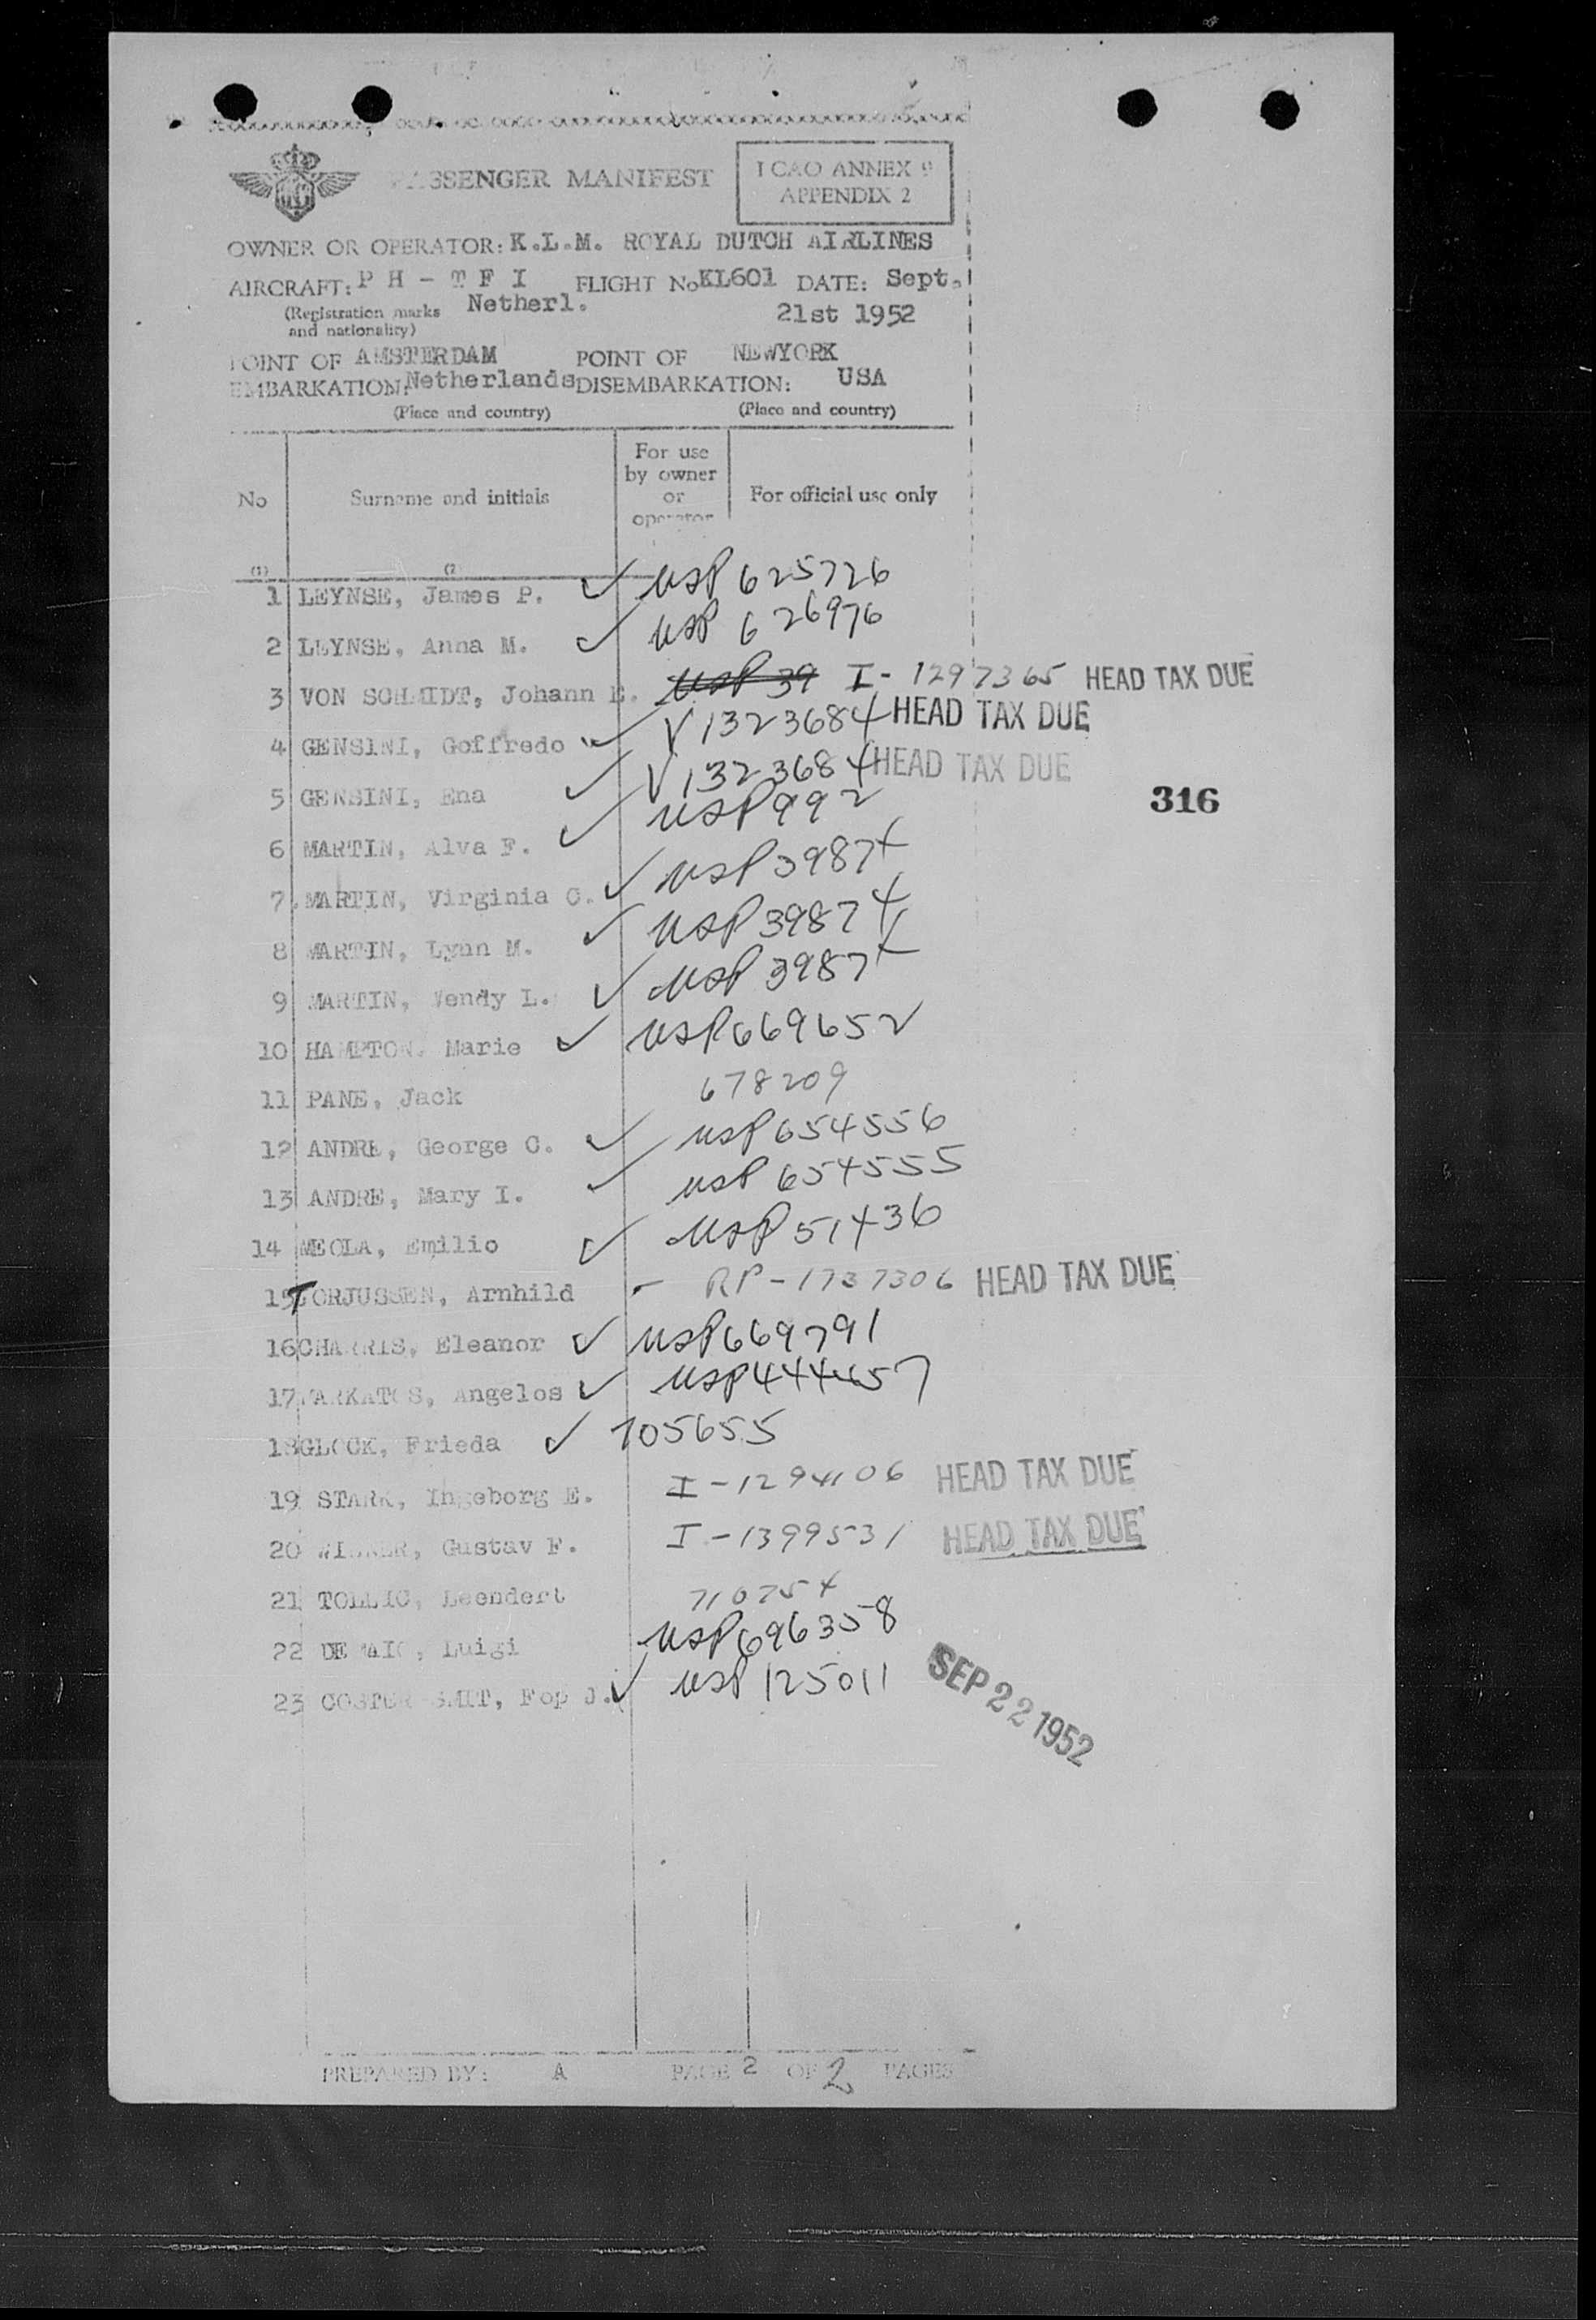 PASSENGER MANIFEST
I CAO ANNEX 9
APPENDIX 2
OWNER OR OPERATOR: K.L.M. ROYAL DUTCH AIRLINES
AIRCRAFT: P H - T F I FLIGHT No KL601 DATE: Sept.
(Registration marks Netherl. 21st 1952
and nationality)
POINT OF AMSTERDAM POINT OF NEWYORK
EMBARKATION: Netherlands DISEMBARKATION: USA
(Place and country) (Place and country)
No Surname and initials For use by owner or operator For official use only
(1) (2)
1 LEYNSE, James P. ✓ USP 625726
2 LEYNSE, Anna M. ✓ USP 626976
3 VON SCHMIDT, Johann E. USP 39 I - 1297365 HEAD TAX DUE
4 GENSINI, Goffredo ✓ V 1323684 HEAD TAX DUE
5 GENSINI, Ena ✓ V 1323684 HEAD TAX DUE
316
6 MARTIN, Alva F. ✓ USP 992
7 MARTIN, Virginia C. ✓ USP 39874
8 MARTIN, Lynn M. ✓ USP 39874
9 MARTIN, Wendy L. ✓ USP 39874
10 HAMPTON, Marie ✓ USP 669652
11 PANE, Jack 678209
12 ANDRE, George C. ✓ USP 654556
13 ANDRE, Mary I. ✓ USP 654555
14 MEOLA, Emilio ✓ USP 51436
15 TORJUSSEN, Arnhild - RP - 1737306 HEAD TAX DUE
16 CHARRIS, Eleanor ✓ USP 669791
17 Angelos ✓ USP 444457
18 GLOCK, Frieda ✓ 705655
19 STARK, Ingeborg E. I - 1294106 HEAD TAX DUE
20 Gustav F. I - 1399531 HEAD TAX DUE
21 Leendert 710754
22 DE MAIO, Luigi USP 696358
23 COSTER SMIT, Fop J. ✓ USP 125011
SEP 22 1952
PREPARED BY: A PAGE 2 OF 2 PAGES